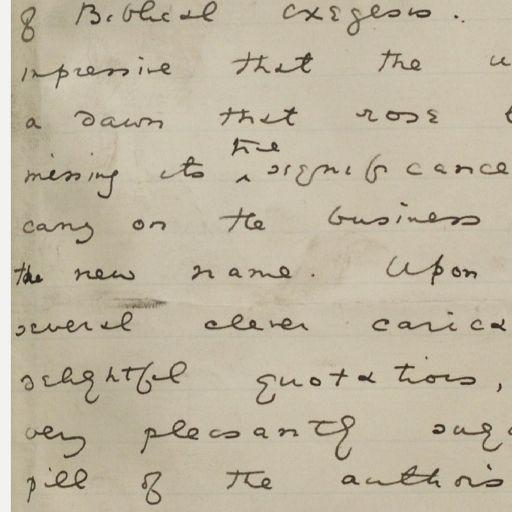 of Biblical exegesis.
impressive that the
a dawn that rose
missing its true significance
carry on the business
the new name. Upon
several clever carica
delightful quotations,
very pleasantly sug
pill of the author's